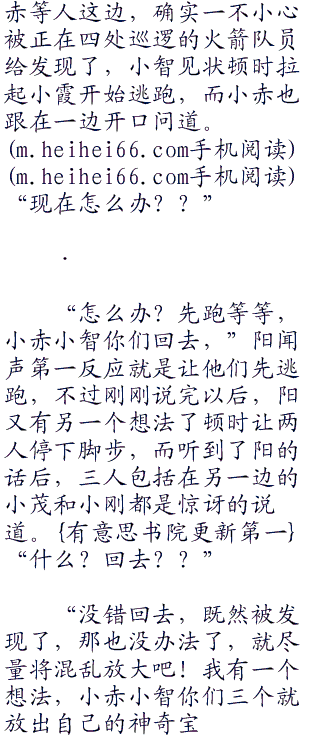 赤等人这边，确实一不小心
被正在四处巡逻的火箭队员
给发现了，小智见状顿时拉
起小霞开始逃跑，而小赤也
跟在一边开口问道。
(m.heihei66.com手机阅读)
(m.heihei66.com手机阅读)
“现在怎么办？？”
.
“怎么办？先跑等等，
小赤小智你们回去，”阳闻
声第一反应就是让他们先逃
跑，不过刚刚说完以后，阳
又有另一个想法了顿时让两
人停下脚步，而听到了阳的
话后，三人包括在另一边的
小茂和小刚都是惊讶的说
道。{有意思书院更新第一}
“什么？回去？？”
“没错回去，既然被发
现了，那也没办法了，就尽
量将混乱放大吧！我有一个
想法，小赤小智你们三个就
放出自己的神奇宝